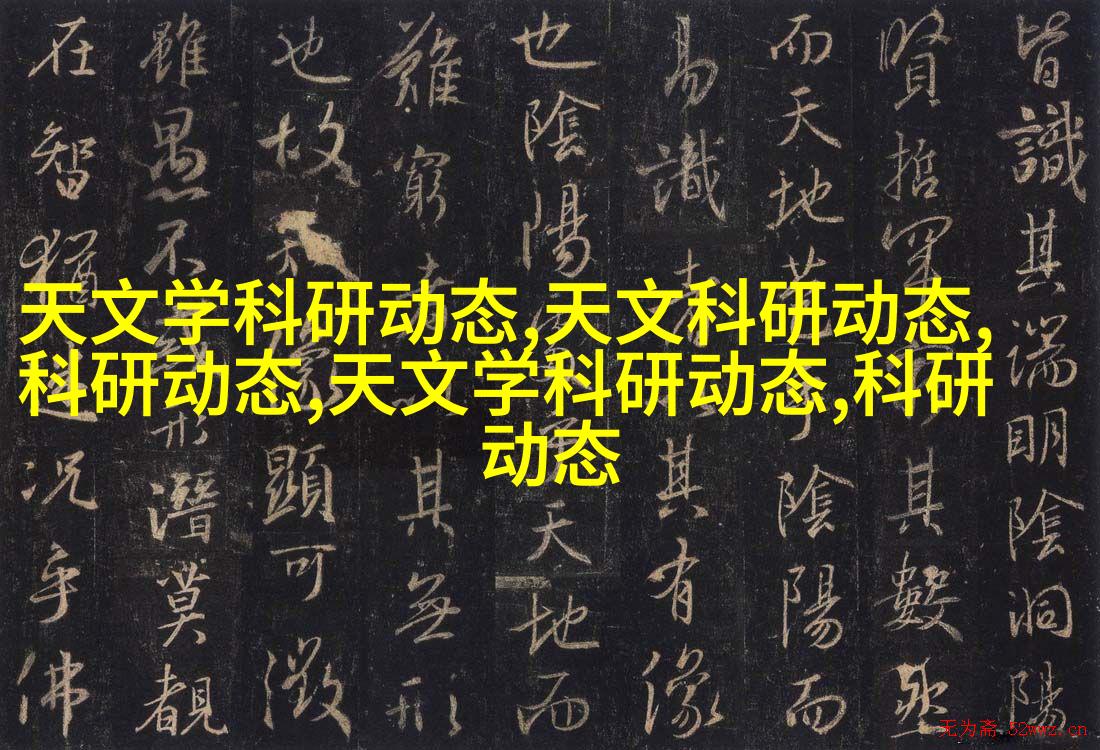 天文学科研动态,天文科研动态,
科研动态,天文学科研动态,科研
动态
皆識其端明陰洞陽
賢哲罕其數然
而天地苞乎陰陽而
易識者其有像
也陰陽天地而
難窮者其無形
也故顯可徵
雖愚不形潛莫覩
在智猶迷況乎佛
无为斋 52wwz.cn